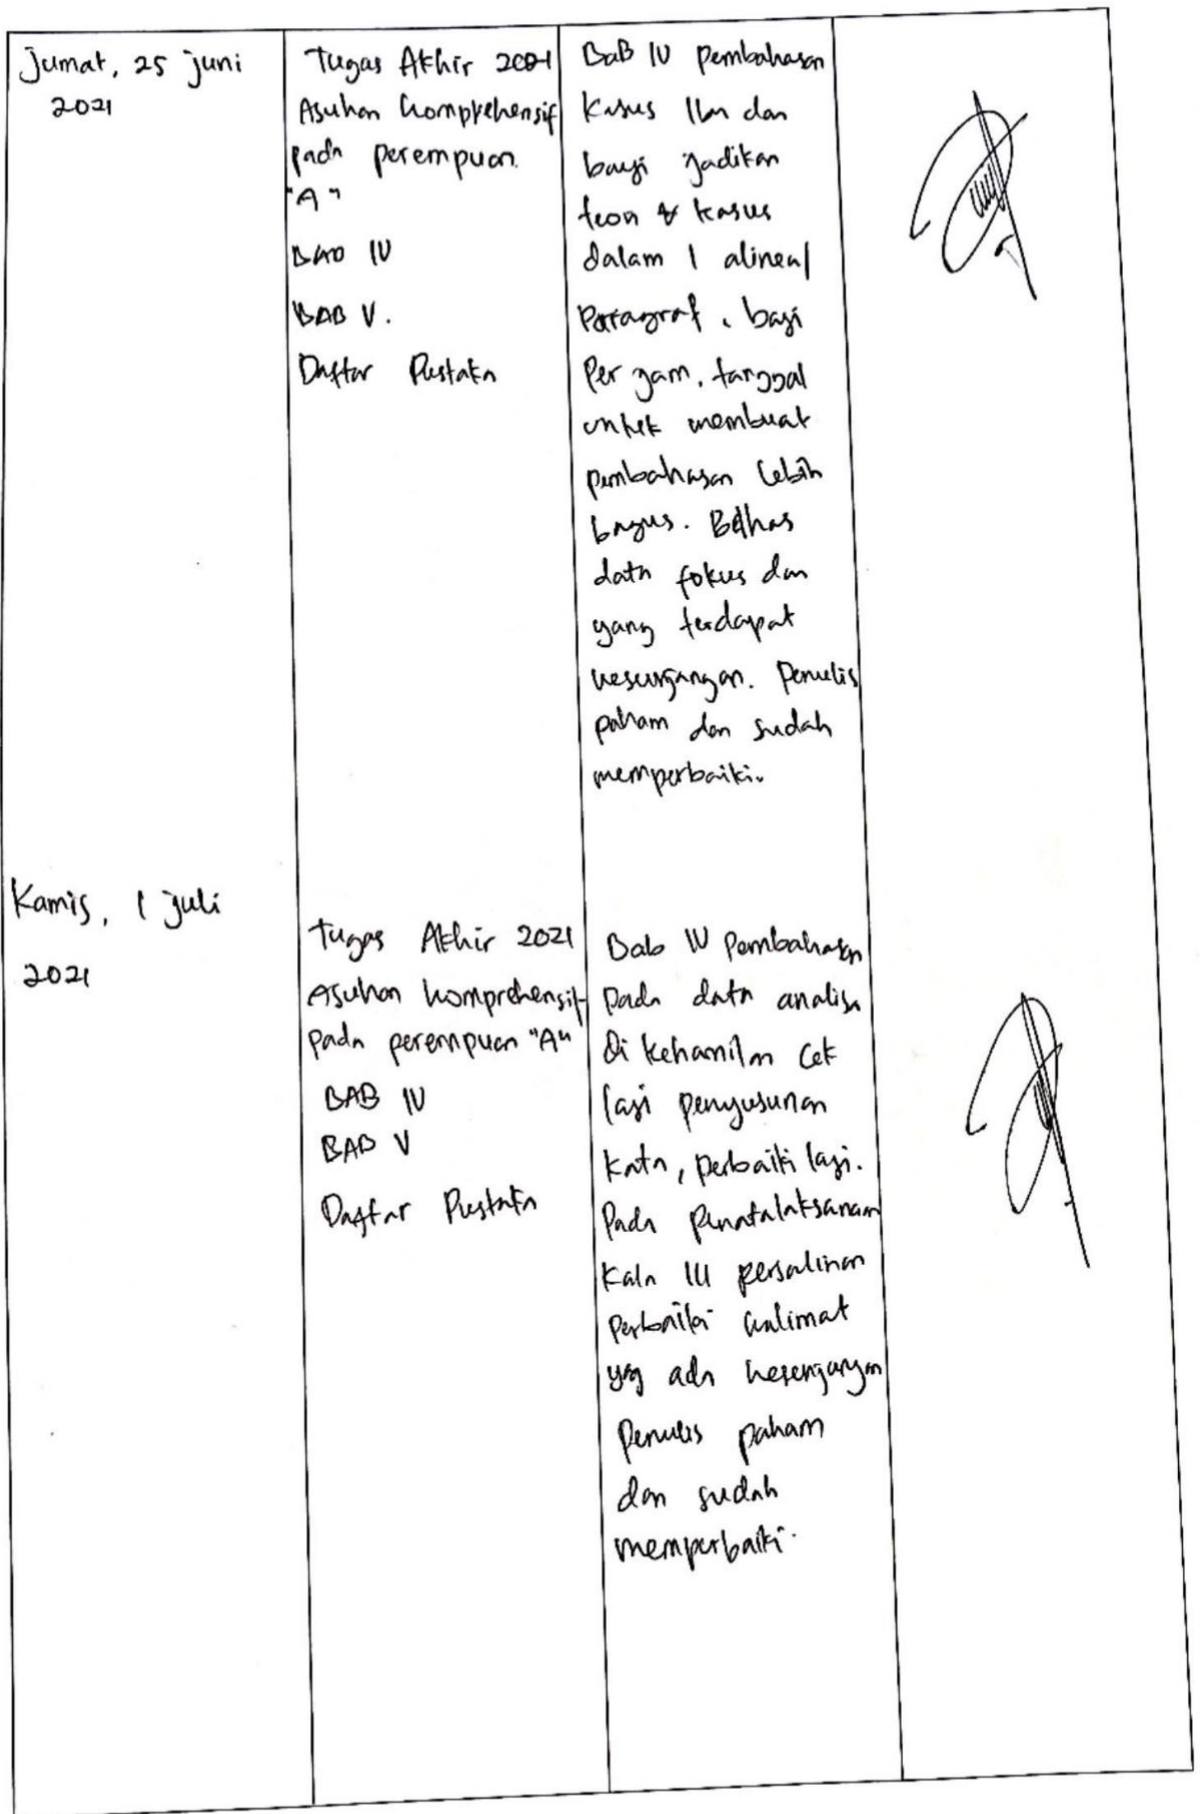 Jumat, 25 juni
2021
Tugas Akhir 2021
Asuhan komprehensif
pada perempuan
"A"
BAB IV
BAB V.
Daftar Pustaka
BAB IV Pembahasan
Kasus dan
bayi jadikan
teori & kasus
dalam 1 alinea/
Paragraf, bagi
Per jam, tanggal
untuk membuat
pembahasan lebih
bagus. Bahas
data fokus dan
yang terdapat
kesenjangan. Penulis
paham dan sudah
memperbaiki.
Kamis, 1 juli
2021
Tugas Akhir 2021
Asuhan komprehensif
pada perempuan "A"
BAB IV
BAB V
Daftar Pustaka
Bab IV Pembahasan
Pada data analisa
di kehamilan Cek
lagi penyusunan
kata, perbaiki lagi.
Pada penatalaksanaan
Kala III persalinan
Perbaiki kalimat
yg ada kesenjangan
Penulis paham
dan sudah
memperbaiki.